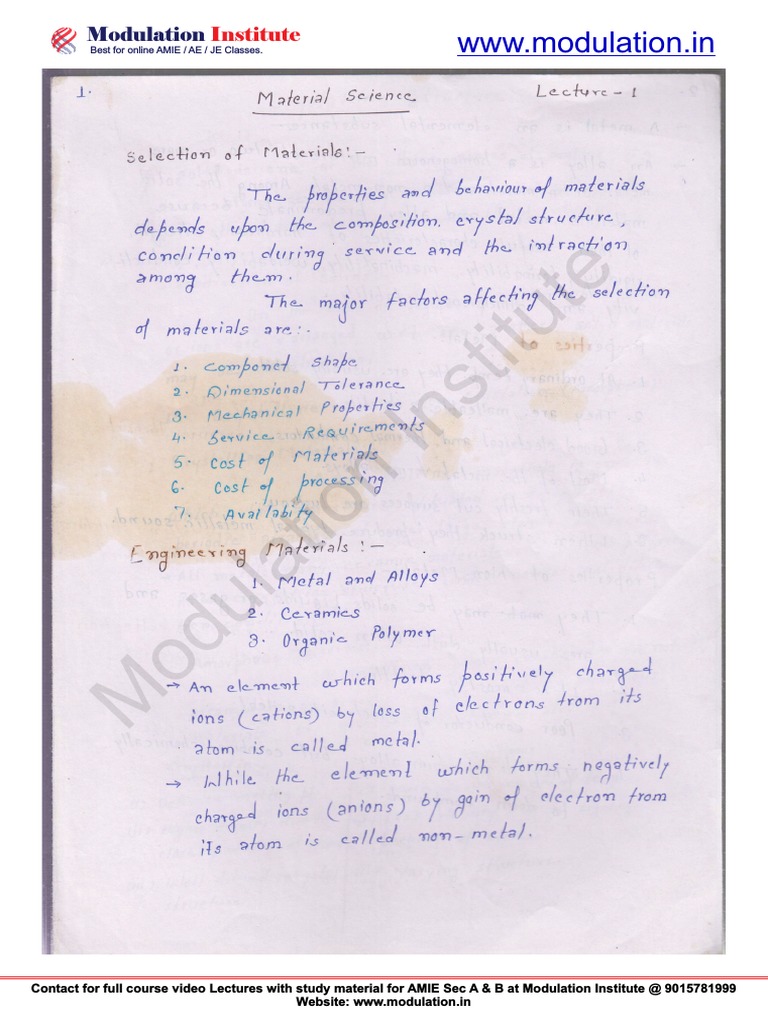 Modulation Institute
Best for online AMIE / AE / JE Classes.
www.modulation.in
1.
Material Science
Lecture - 1
Selection of Materials:-
The properties and behaviour of materials
depends upon the composition. crystal structure,
condition during service and the intraction
among them.
The major factors affecting the selection
of materials are:.
1. Componet shape
2. Dimensional Tolerance
3. Mechanical Properties
4. Service Requirements
5. Cost of Materials
6. Cost of processing
7. Availabity
Engineering Materials:-
1. Metal and Alloys
2. Ceramics
3. Organic Polymer
→ An element which forms positively charged
ions (cations) by loss of electrons from its
atom is called metal.
→ While the element which forms negatively
charged ions (anions) by gain of electron from
its atom is called non-metal.
Modulation Institute
Contact for full course video Lectures with study material for AMIE Sec A & B at Modulation Institute @ 9015781999
Website: www.modulation.in